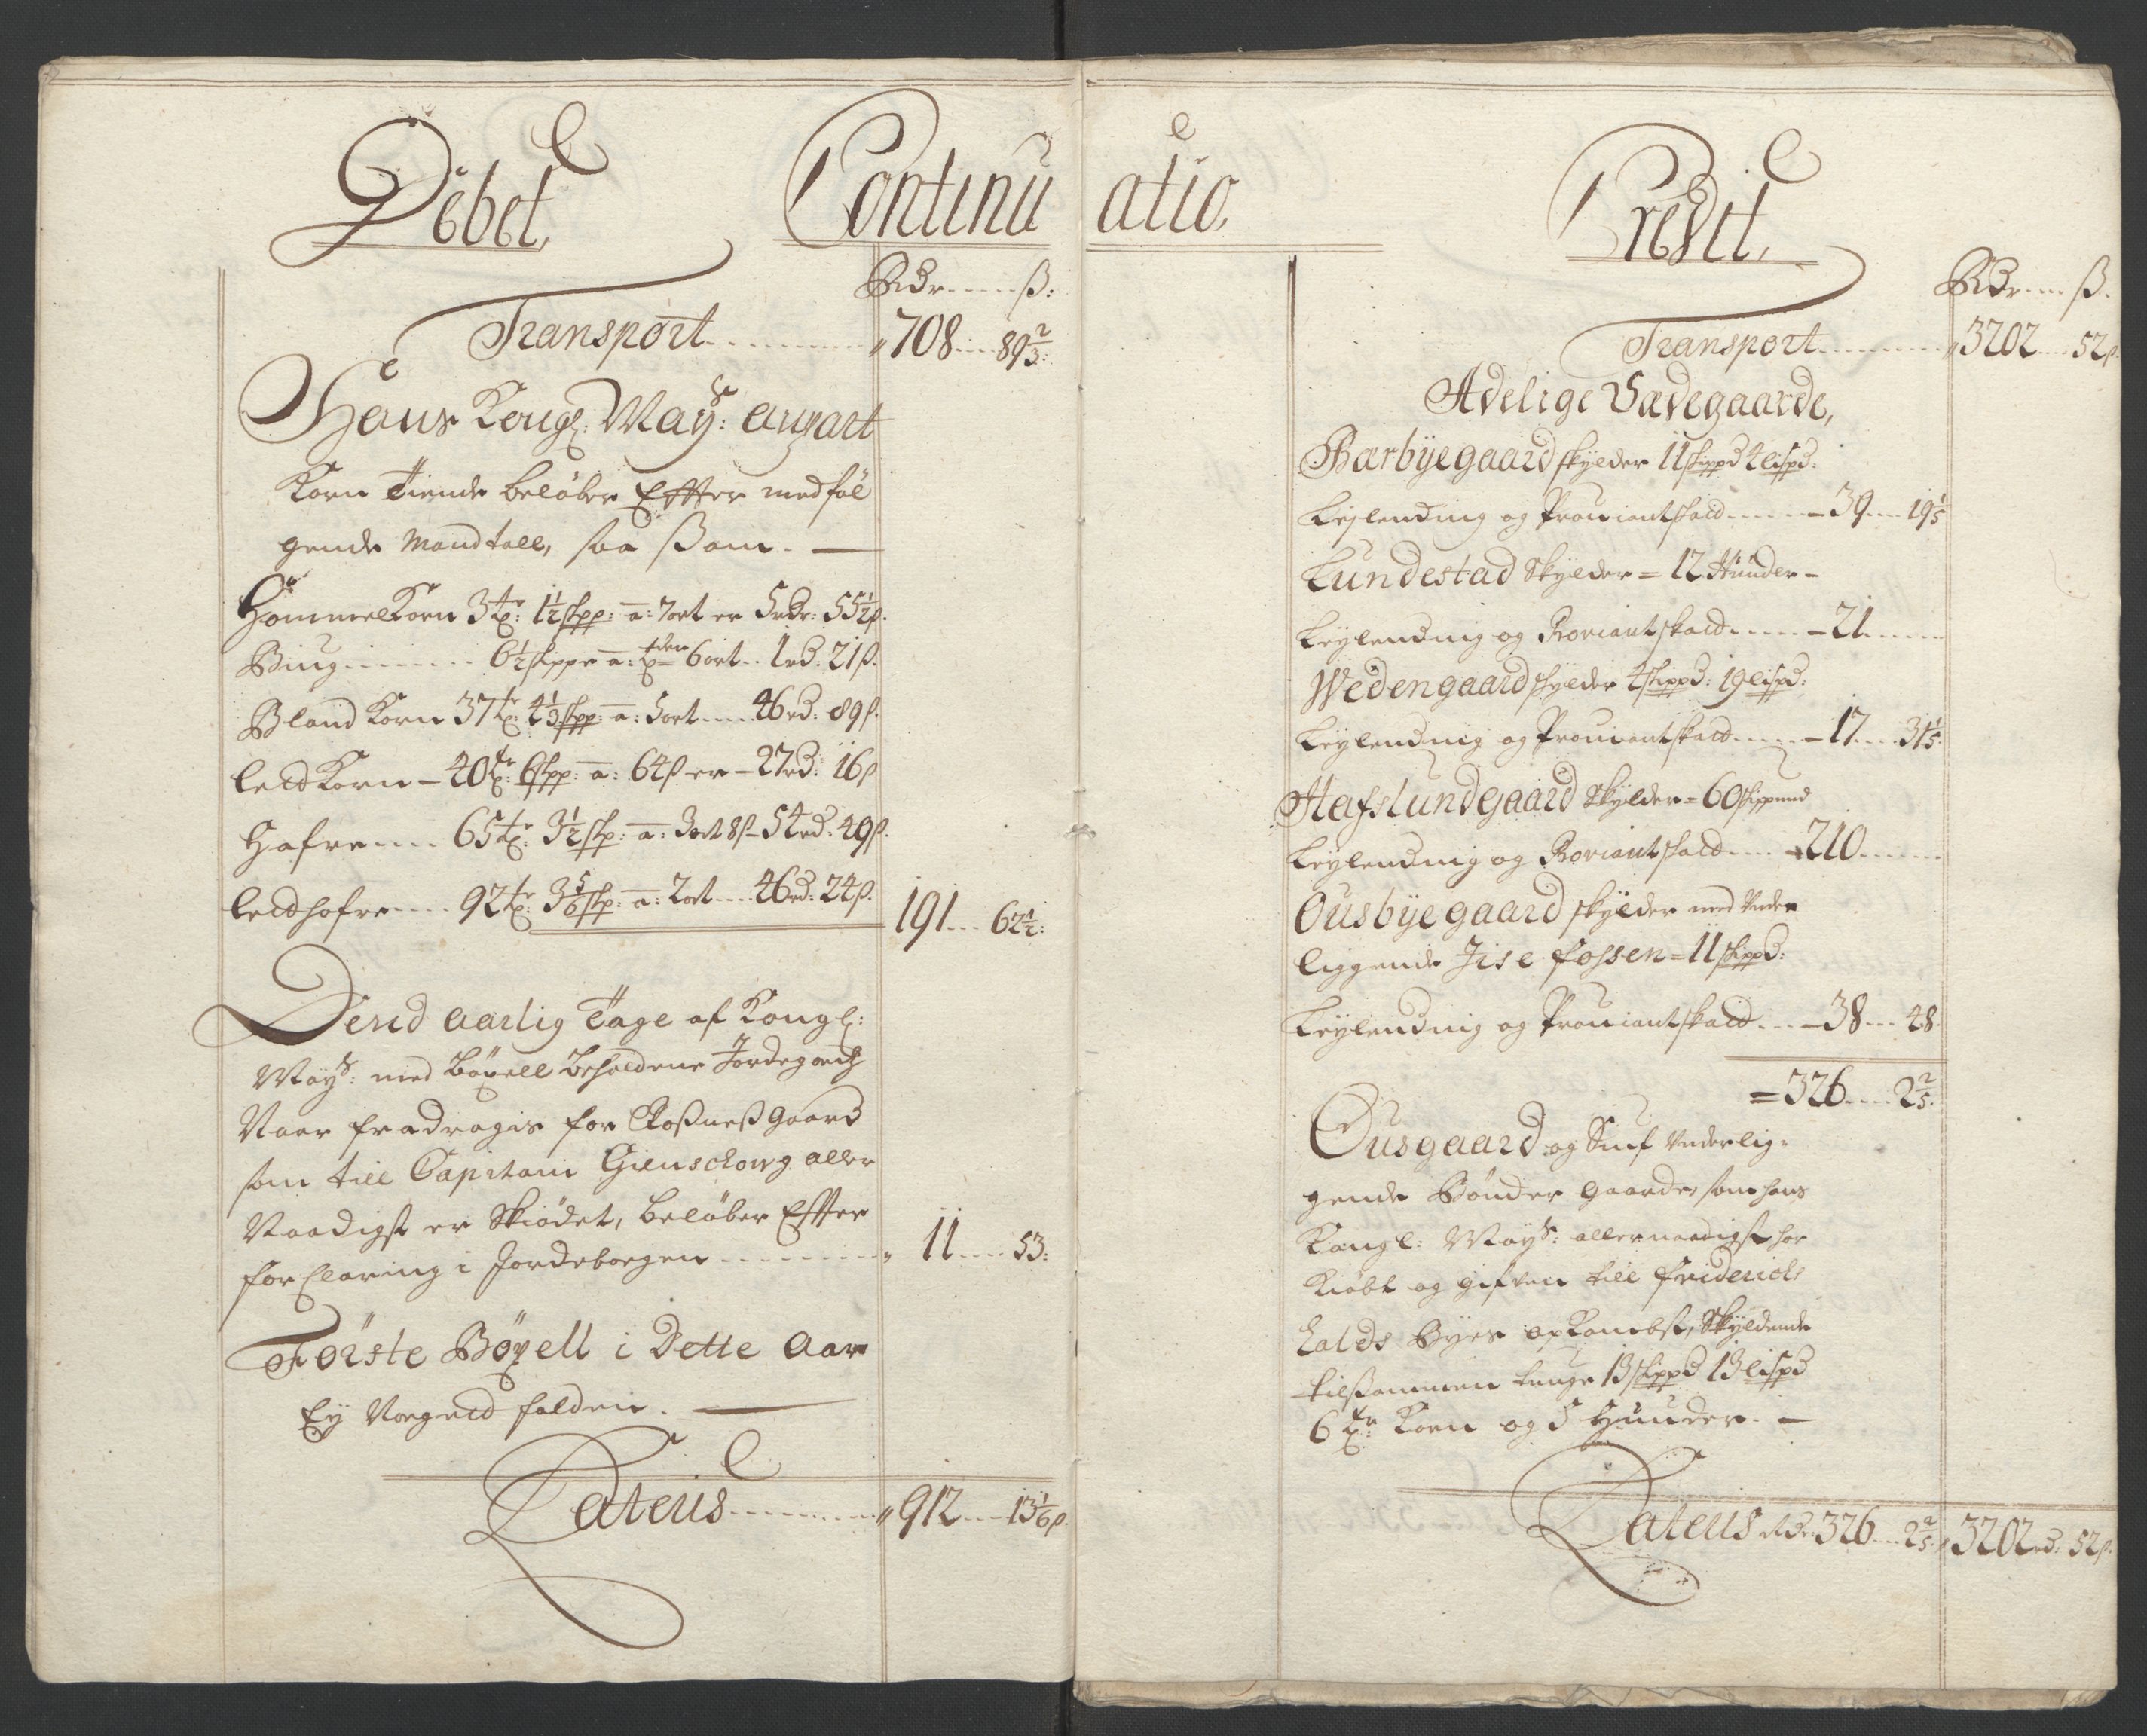 Debet, Continu
Rdr ß:
Transport 708 89 2/3:
Hans Kongl: Maÿts: anpart
Korn Tiende beløber Effter medføl
gende Mandtall, saa ßom. —
HommelKorn 3 tr: 1 1/2 skpp: a: 7 ort er 5 rdr: 55 1/2 ß.
Biug 6 1/2 skippe a: tden 6 ort 1 rd: 21 ß.
Bland Korn 37 tr: 4 1/3 skpp: a: 5 ort 46 rd: 89 ß.
leid Korn – 40 tr: 6 skpp: a: 64 ß er – 27 rd: 16 ß
Hafre 65 tr: 3 1/2 skp: a: 3 ort 8 ß – 54 rd. 49 ß.
leidhafre 92 tr: 3 5/6 skp: a: 2 ort 46 rd: 24 ß. 191 62 1/2:
Dend aarlig Tage af Kongl:
Maÿts: med Böxell beholdene Jordegodtz
Naar fradragis for Roßneß Gaard
som till Capitain Gienschow aller
Naadigst er Skiödet, beløber Effter
forClaring i Jordebogen 11 53:
Förste Böxell i Dette Aar
Eÿ Noegeld falden. —
Lateus 912 13 1/6 ß.
atio, Credit,
Rdr ß.
Transport 3202 52 ß.
Adelige Sædegaarde,
Bærbÿegaard skÿlder 11 skippd 4 lispd:
Leÿlending og Prouiantskald – 39 19 1/5
Lundestad Skÿlder = 12 Hunder –
Leÿlending og Proviantskald – 21
Wedengaard skÿlder 4 skippd: 19 lispd:
Leÿlending og Prouiantskald – 17 31 1/5:
Hafslundgaard Skÿlder = 60 skippund
Leÿlending og Proviantskald – 210
Ousbÿegaard skÿlder med Under
liggende Jise fossen = 11 skippd:
Leÿlending og Prouiantskald – 38 48.
= 326 2 2/5.
Ousgaard og Sinf Underlig=
gende Bønder Gaarde, som hans
Kongl: Maÿts: allernaadigst har
Kiøbt og gifven till Friderich
halds Byes opKombst, Skÿldende
tilsammen tunge 13 skippd 13 lispd
6 tr: Korn og 5 Hunder. —
Lateus Rdr 326 2 2/5. 3202 rd: 52 ß.